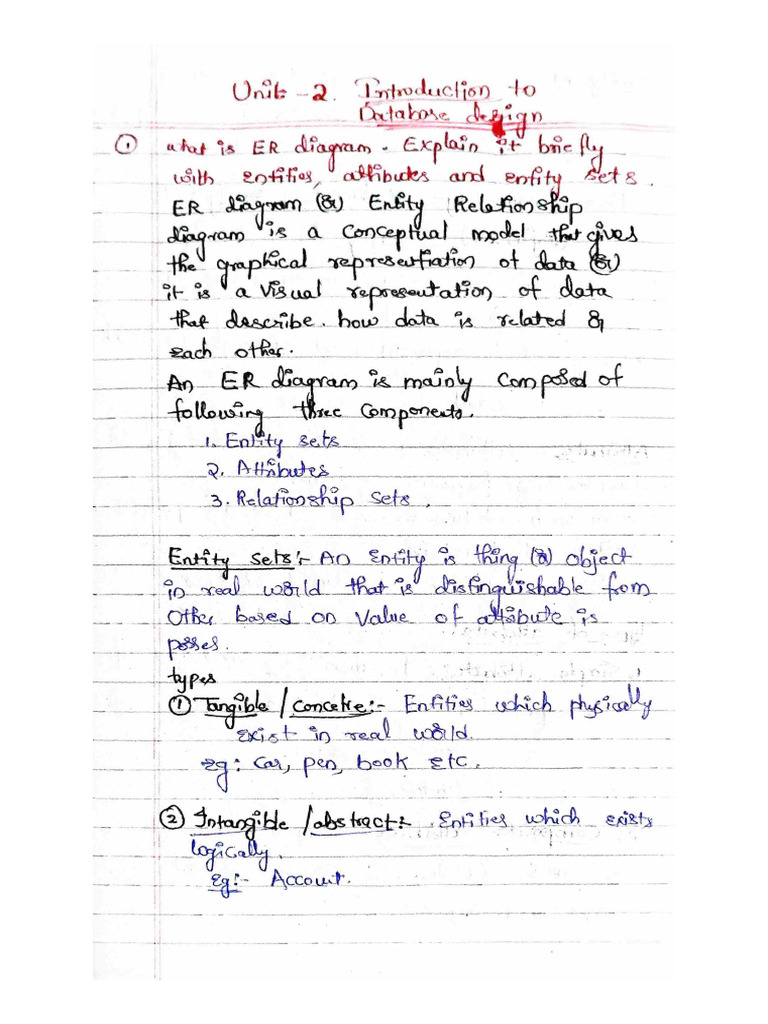 Unit - 2. Introduction to
Database design
① what is ER diagram. Explain it briefly
with entities, attibutes and entity sets.
ER diagram (or) Entity Relationship
diagram is a conceptual model that gives
the graphical representiation of data (or)
it is a visual representation of data
that describe how data is related &
each other.
An ER diagram is mainly composed of
following three components.
1. Entity sets
2. Attributes
3. Relationship sets.
Entity sets:- An entity is thing (or) object
in real world that is distinguishable from
other based on value of attribute is
posses.
types
① Tangible / concetre:- Entities which physically
exist in real world.
eg: car, pen, book etc.
② Intangible / abstract:- Entities which exists
logically.
Eg:- Account.